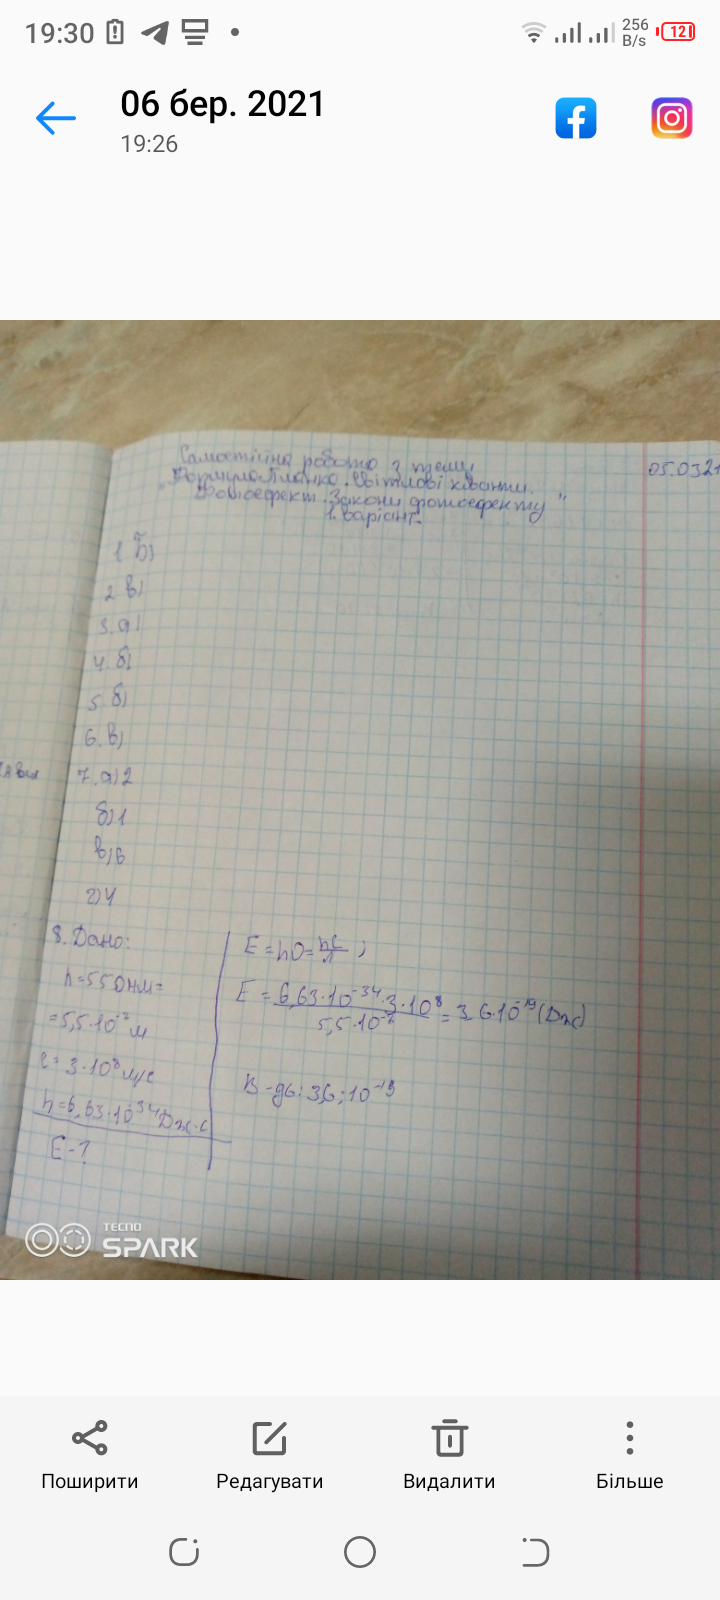 19:30
256 B/s
12
06 бер. 2021
19:26
Самостійна робота з теми
05.0321
"Формула Планка. Світлові кванти.
Фотоефект. Закони фотоефекту"
1 варіант.
1 Б)
2 в)
3. а)
4. б)
5. б)
6. в)
7. а) 2
б) 1
в) 6
г) 4
8. Дано:
λ=550нм=
=5,5·10⁻⁷м
c=3·10⁸м/с
h=6,63·10⁻³⁴Дж·с
E-?
E=hυ=hc/λ;
E=6,63·10⁻³⁴·3·10⁸/5,5·10⁻⁷=3.6·10⁻¹⁹(Дж)
В-дь: 3,6;10⁻¹⁹
TECNO
SPARK
Поширити
Редагувати
Видалити
Більше